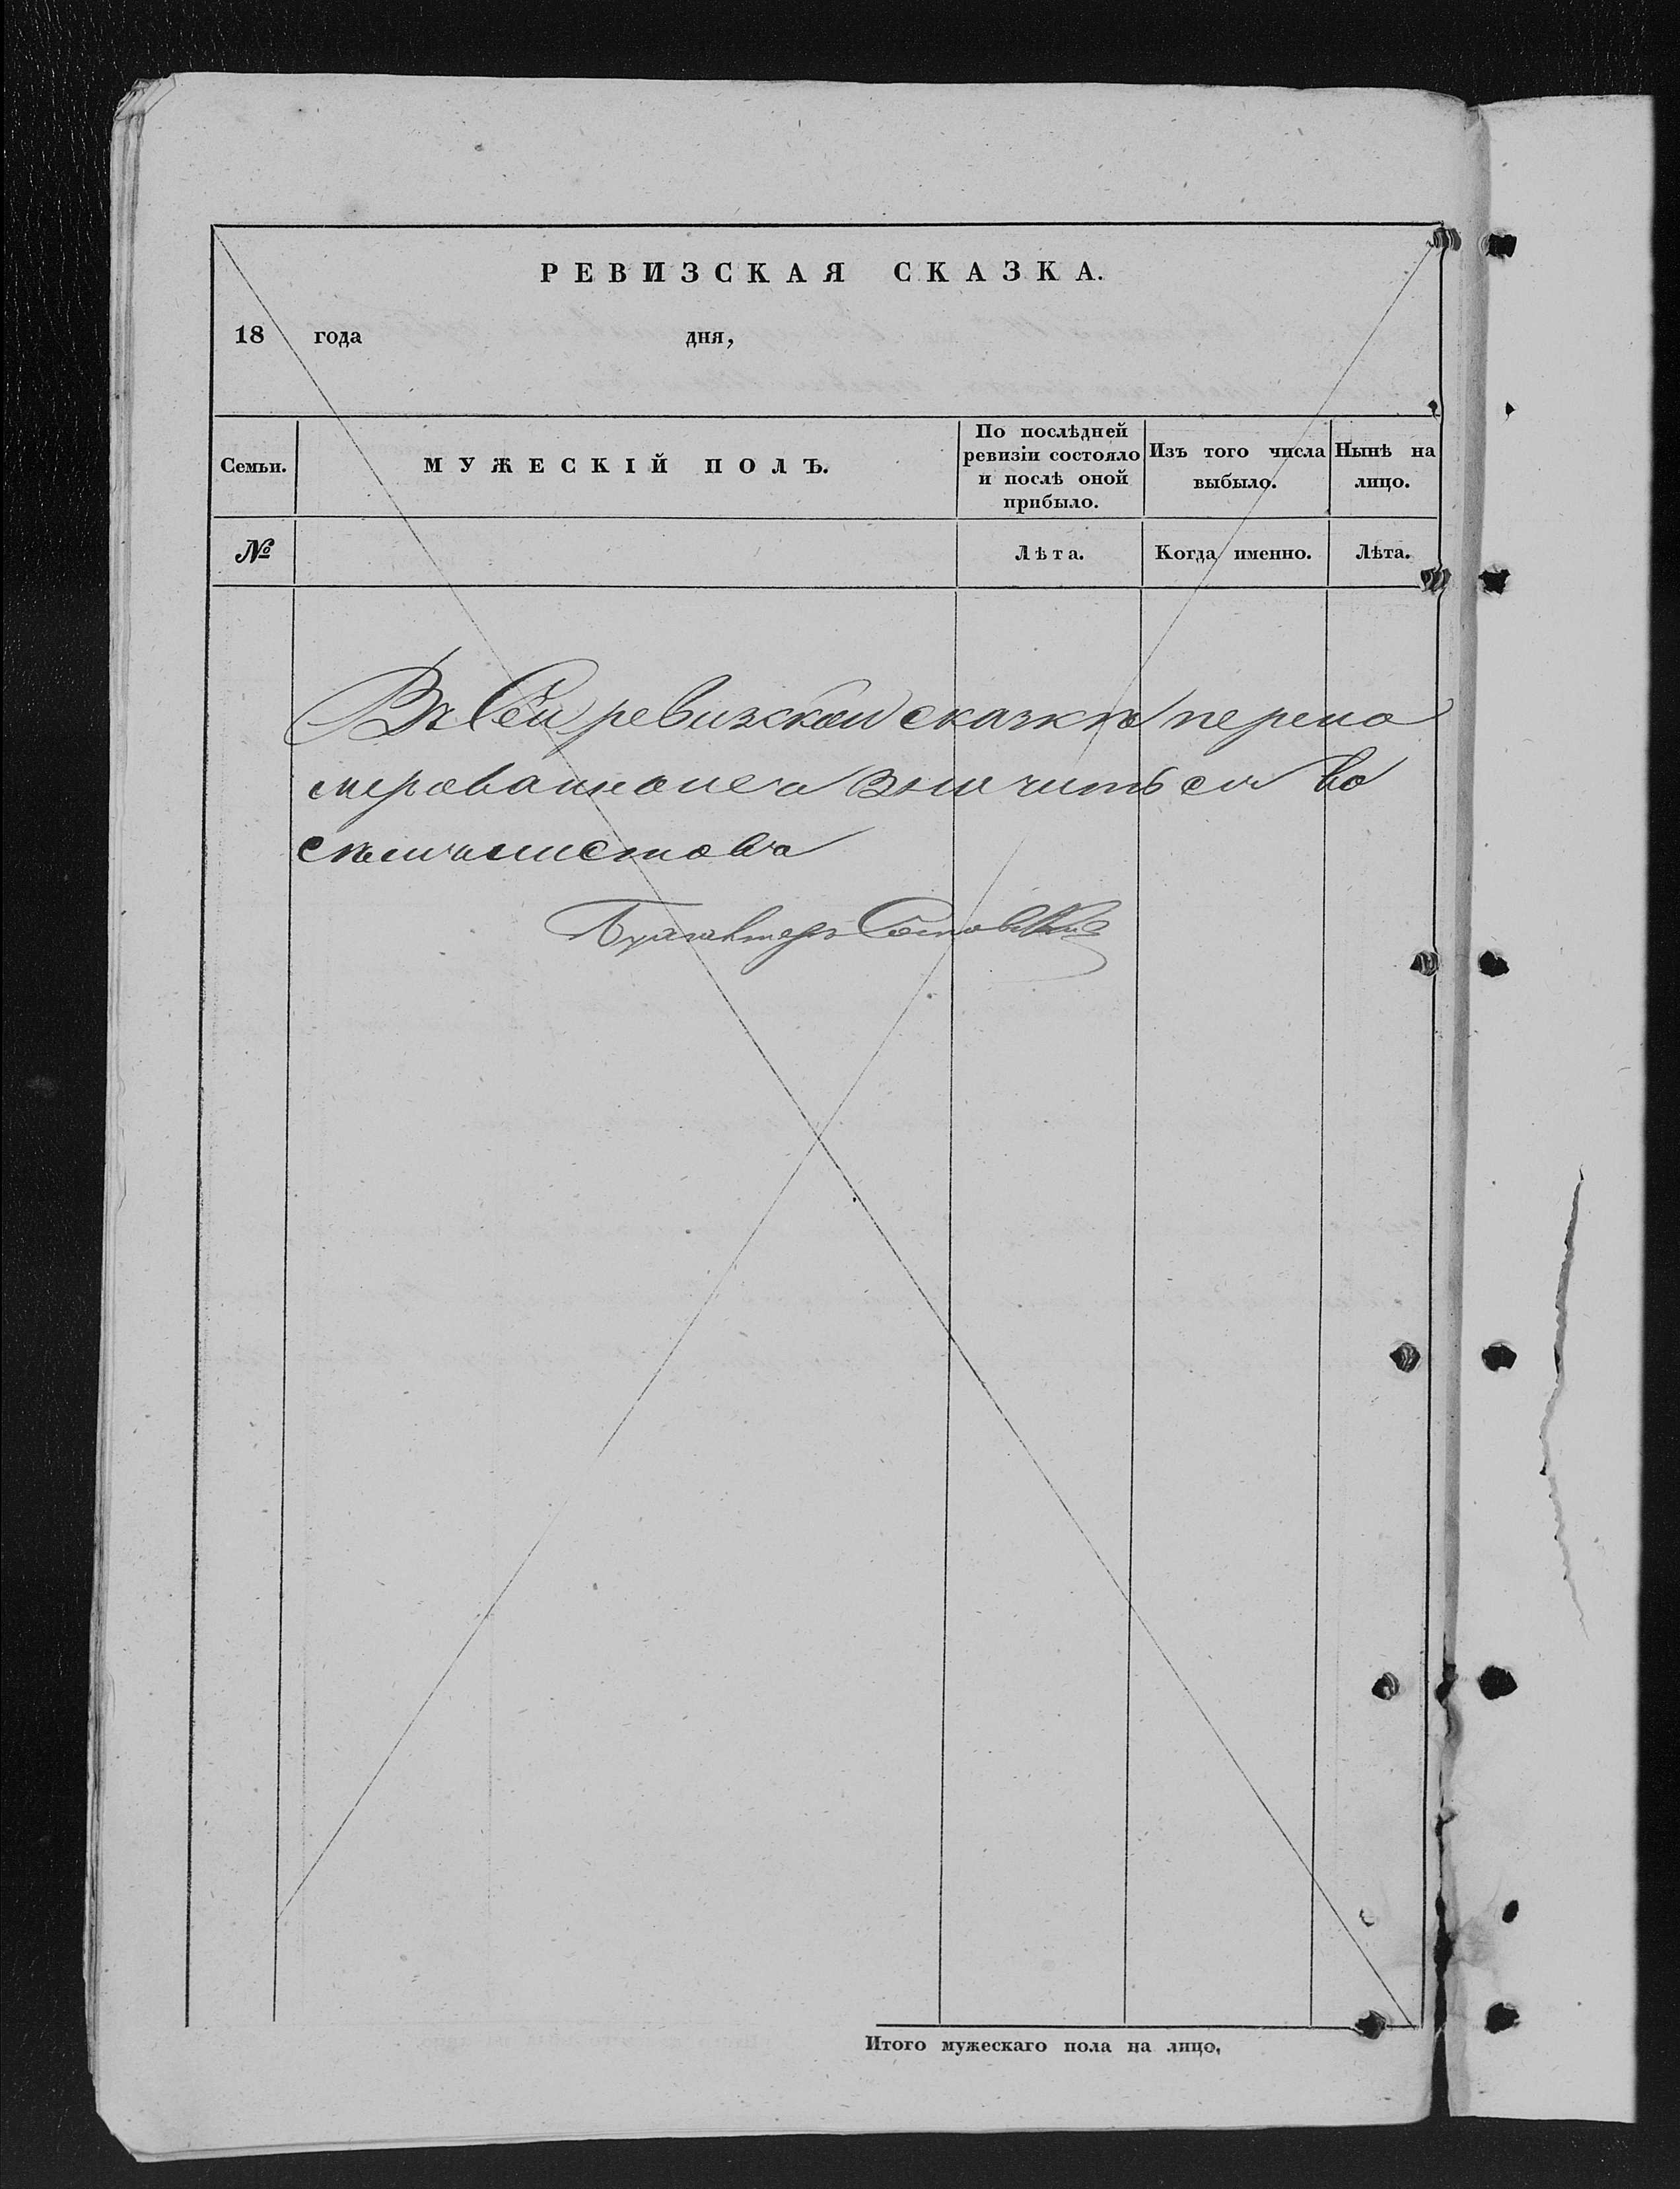 РЕВИЗСКАЯ СКАЗКА.
18 года дня,
Семьи.
МУЖЕСКІЙ ПОЛЪ.
По послѣдней ревизіи состояло и послѣ оной прибыло.
Изъ того числа выбыло.
Нынѣ на лицо.
№
Лѣта.
Когда именно.
Лѣта.
Въ Сей ревизской сказкѣ перено
мерованного значиться
листовъ
Бухгалтеръ
Итого мужескаго пола на лицо,